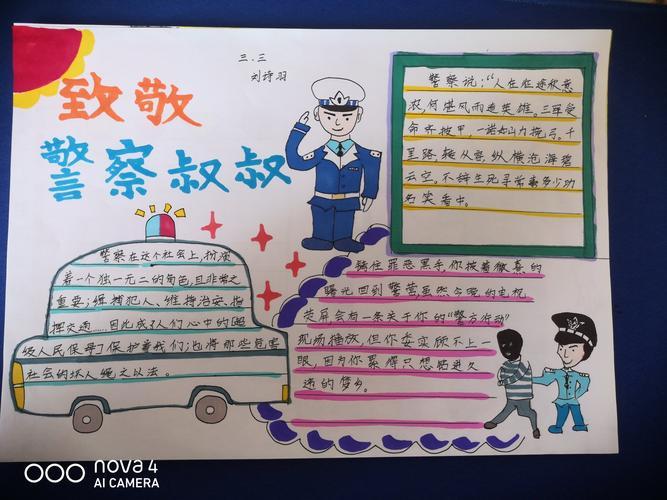 三.三
刘诗羽
致敬
警察叔叔
警察说:“人在征途秋意
浓,何堪风雨选英雄。三军受
命齐披甲,一诺如山力挽弓。千
里路,转从容,纵横沧海碧
云空。不辞生死寻常事多少功
名笑看中。
警察在这个社会上,扮演
着一个独一无二的角色,且非常之
重要;缉捕犯人、维持治安、指
挥交通……因此成了人们心中的超
级人民保母了保护着我们;也将那些危害
社会的坏人绳之以法。
擒住罪恶黑手,你披着微熹的
曙光回到警营虽然今晚的电视
荧屏会有一条关于你的“警方行动”
现场播放,但你委实顾不上一
眼,因为你累得只想钻进久
违的梦乡。
nova 4
AI CAMERA